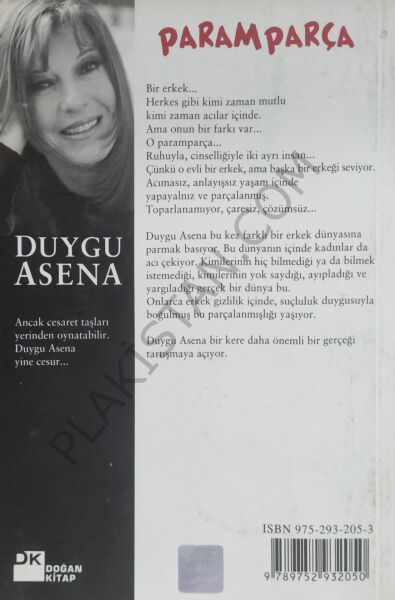 PARAMPARÇA
Bir erkek...
Herkes gibi kimi zaman mutlu
kimi zaman acılar içinde.
Ama onun bir farkı var...
O paramparça...
Ruhuyla, cinselliğiyle iki ayrı insan...
Çünkü o evli bir erkek, ama başka bir erkeği seviyor.
Acımasız, anlayışsız yaşam içinde
yapayalnız ve parçalanmış.
Toparlanamıyor, çaresiz, çözümsüz...
Duygu Asena bu kez farklı bir erkek dünyasına
parmak basıyor. Bu dünyanın içinde kadınlar da
acı çekiyor. Kimilerinin hiç bilmediği ya da bilmek
istemediği, kimilerinin yok saydığı, ayıpladığı ve
yargıladığı gerçek bir dünya bu.
Onlarca erkek gizlilik içinde, suçluluk duygusuyla
boğulmuş bu parçalanmışlığı yaşıyor.
Duygu Asena bir kere daha önemli bir gerçeği
tartışmaya açıyor.
DUYGU
ASENA
Ancak cesaret taşları
yerinden oynatabilir.
Duygu Asena
yine cesur...
DK
DOĞAN
KİTAP
ISBN 975-293-205-3
9 789752 932050
PLAKİSTAN.COM